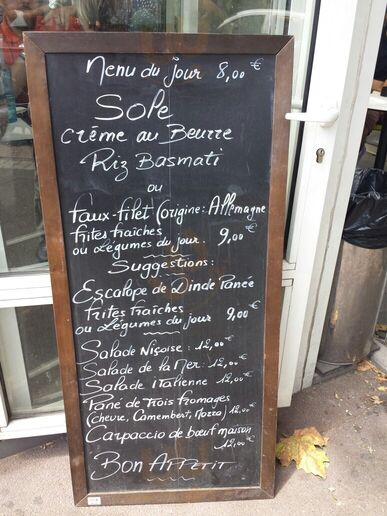 Menu du jour 8,00 €
Sole
crème au Beurre
Riz Basmati
ou
faux-filet (origine: Allemagne
frites fraîches
ou légumes du jour. 9,00 €
Suggestions:
Escalope de Dinde Panée
frites fraîches
ou légumes du jour 9,00 €
Salade Niçoise: 12,00 €
Salade de la Mer: 12,00 €
Salade italienne 12,00 €
Pané de trois fromages
(chèvre, Camembert, Mozza) 12,00 €
Carpaccio de bœuf maison
12,00 €
Bon Appétit